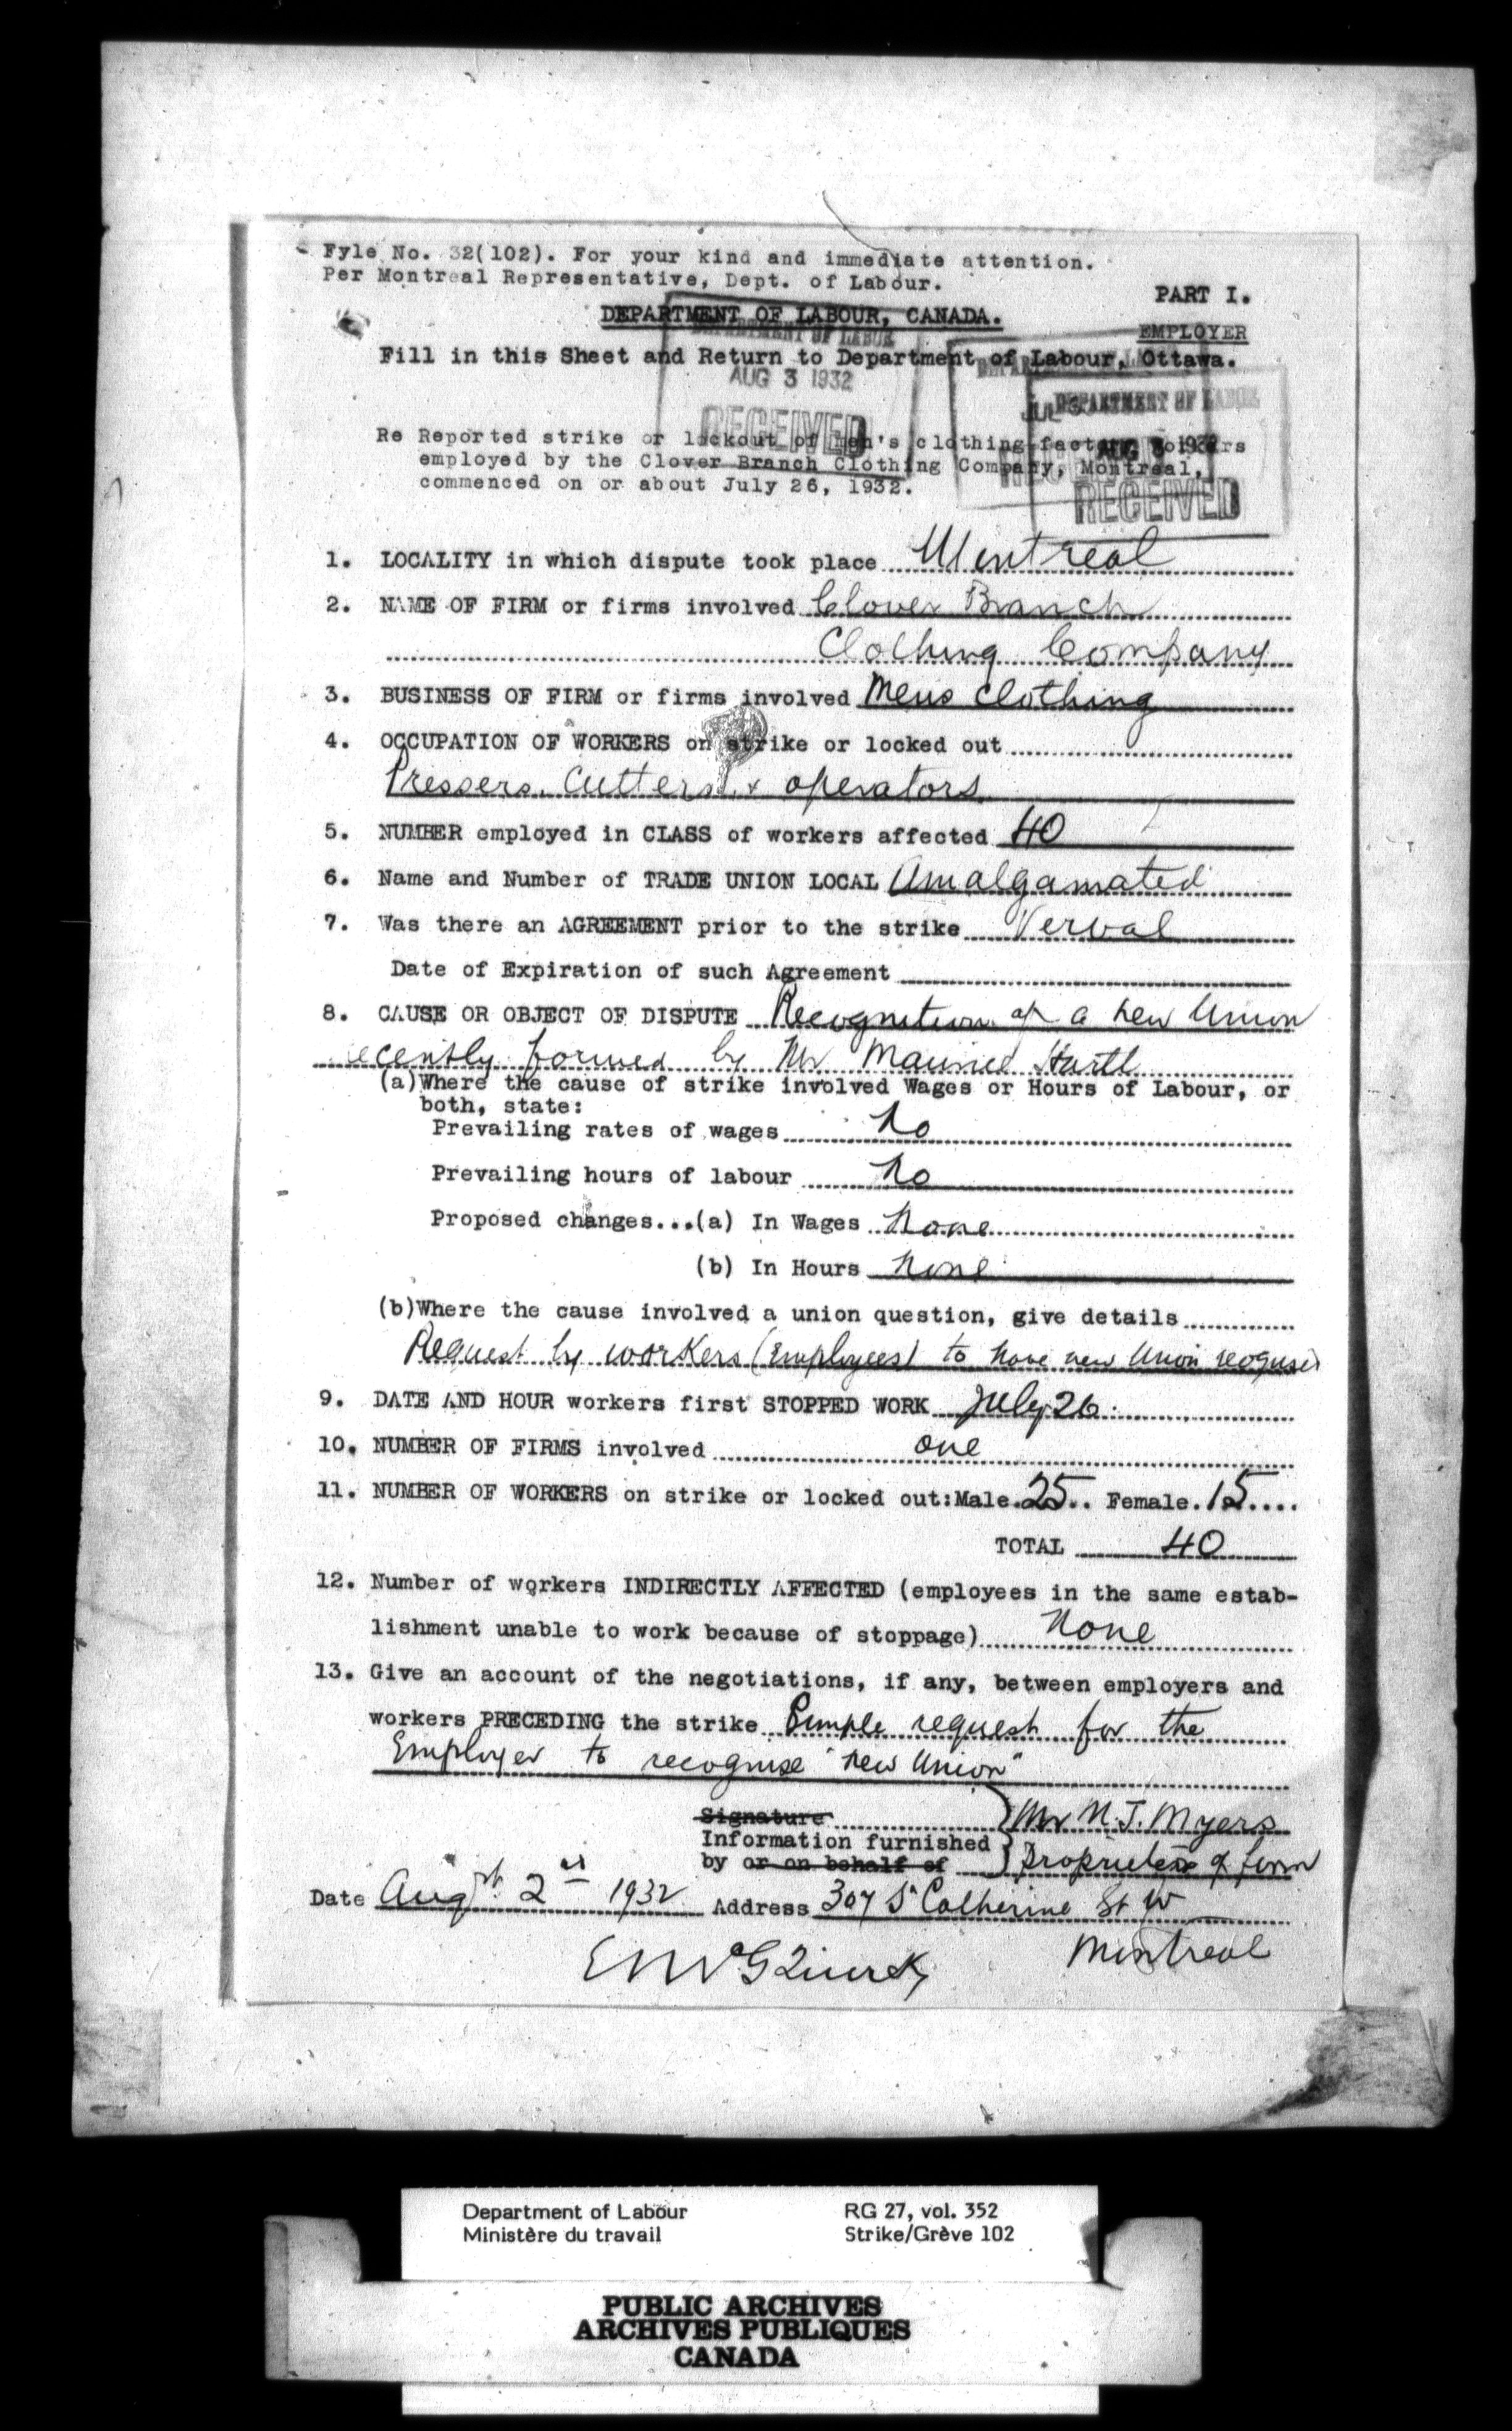 Fyle No. 32(102). For your kind and immediate attention.
Per Montreal Representative, Dept. of Labour.
PART I.
DEPARTMENT OF LABOUR, CANADA.
EMPLOYER
DEPARTMENT OF LABOR
Fill in this Sheet and Return to Department of Labour, Ottawa.
AUG 3 1932
RECEIVED
DEPARTMENT OF LABOR
Re Reported strike or lockout of men's clothing factory workers
employed by the Clover Branch Clothing Company, Montreal,
commenced on or about July 26, 1932.
RECEIVED
1. LOCALITY in which dispute took place Montreal
2. NAME OF FIRM or firms involved Clover Branch
Clothing Company
3. BUSINESS OF FIRM or firms involved Mens Clothing
4. OCCUPATION OF WORKERS on strike or locked out
Pressers, Cutters, & operators
5. NUMBER employed in CLASS of workers affected 40
6. Name and Number of TRADE UNION LOCAL Amalgamated
7. Was there an AGREEMENT prior to the strike Verbal
Date of Expiration of such Agreement
8. CAUSE OR OBJECT OF DISPUTE Recognition of a new Union
recently formed by Mr Maurice
(a) Where the cause of strike involved Wages or Hours of Labour, or
both, state:
Prevailing rates of wages No
Prevailing hours of labour No
Proposed changes...(a) In Wages None
(b) In Hours None
(b) Where the cause involved a union question, give details
Request by workers (Employees) to have new Union recognised
9. DATE AND HOUR workers first STOPPED WORK July 26.
10. NUMBER OF FIRMS involved one
11. NUMBER OF WORKERS on strike or locked out: Male. 25.. Female. 15....
TOTAL 40
12. Number of workers INDIRECTLY AFFECTED (employees in the same estab-
lishment unable to work because of stoppage) None
13. Give an account of the negotiations, if any, between employers and
workers PRECEDING the strike Simple request for the
Employer to recognise "new Union"
Signature Mr N. J. Myers
Information furnished
by or on behalf of Proprietor of firm
Date Augst. 2nd 1932 Address 307 St Catherine St W
Montreal
Department of Labour RG 27, vol. 352
Ministère du travail Strike/Grève 102
PUBLIC ARCHIVES
ARCHIVES PUBLIQUES
CANADA